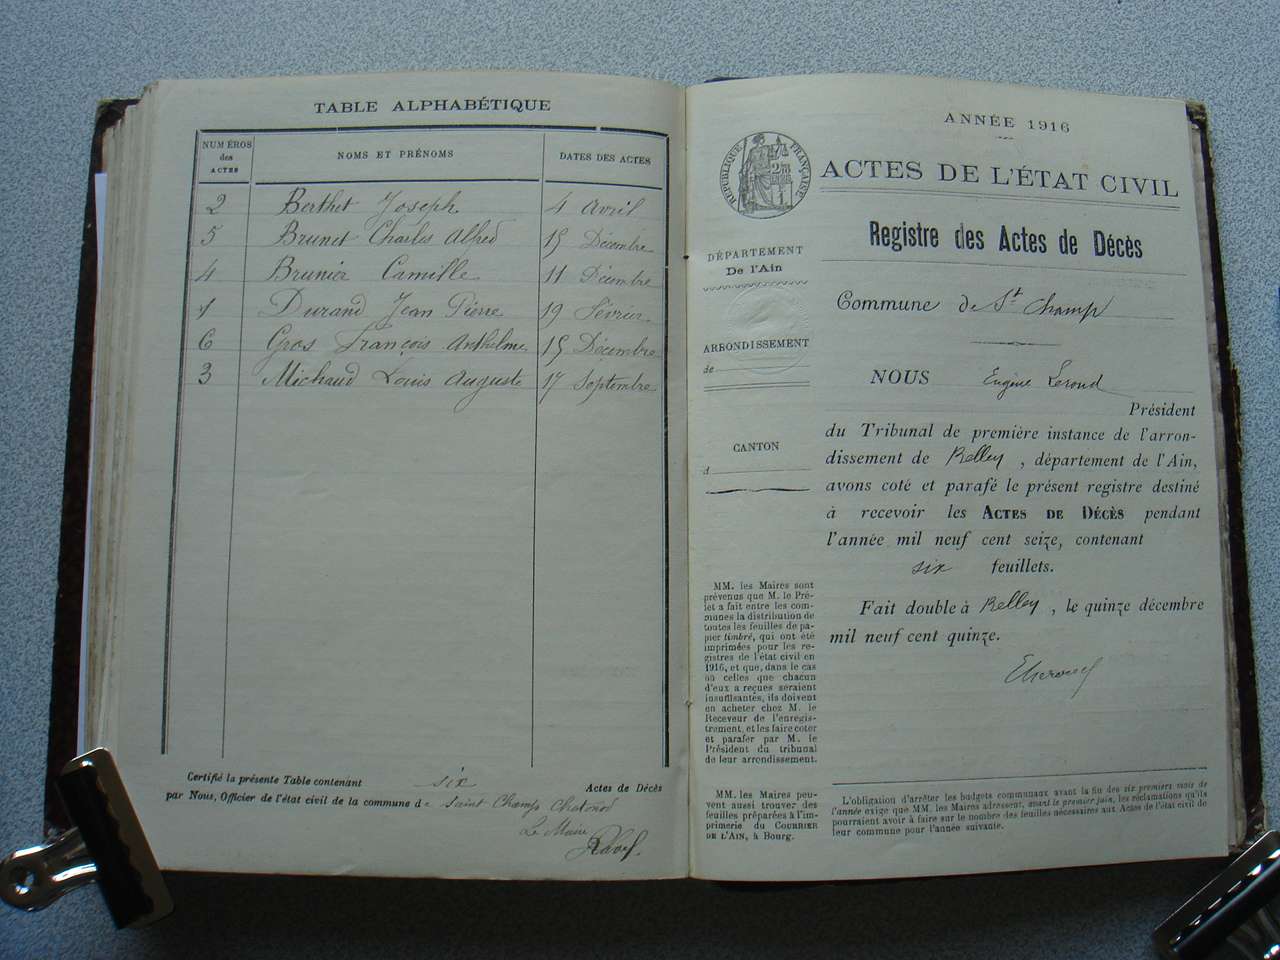 TABLE ALPHABÉTIQUE
NUMÉROS des ACTES NOMS ET PRÉNOMS DATES DES ACTES
2 Berthet Joseph 4 Avril
5 Brunet Charles Alfred 15 Décembre
4 Brunier Camille 11 Décembre
1 Durand Jean Pierre 19 Février
6 Gros François Anthelme 15 Décembre
3 Michaud Louis Auguste 17 Septembre
Certifié la présente Table contenant six Actes de Décès
par Nous, Officier de l'état civil de la commune de Saint Champ Chatonod
Le Maire
Ravet
ANNÉE 1916
RÉPUBLIQUE FRANÇAISE
ACTES DE L'ÉTAT CIVIL
Registre des Actes de Décès
DÉPARTEMENT
De l'Ain
ARRONDISSEMENT
de
CANTON
d
Commune de St Champ
NOUS Eugène
Président
du Tribunal de première instance de l'arron-
dissement de Belley, département de l'Ain,
avons coté et parafé le présent registre destiné
à recevoir les ACTES DE DÉCÈS pendant
l'année mil neuf cent seize, contenant
six feuillets.
Fait double à Belley, le quinze décembre
mil neuf cent quinze.
MM. les Maires sont
prévenus que M. le Pré-
fet a fait entre les com-
munes la distribution de
toutes les feuilles de pa-
pier timbré, qui ont été
imprimées pour les re-
gistres de l'état civil en
1916, et que, dans le cas
où celles que chacun
d'eux a reçues seraient
insuffisantes, ils doivent
en acheter chez M. le
Receveur de l'enregis-
trement, et les faire coter
et parafer par M. le
Président du tribunal
de leur arrondissement.
MM. les Maires peu-
vent aussi trouver des
feuilles préparées à l'im-
primerie du COURRIER
DE L'AIN, à Bourg.
L'obligation d'arrêter les budgets communaux avant la fin des six premiers mois de
l'année exige que MM. les Maires adressent, avant le premier juin, les réclamations qu'ils
pourraient avoir à faire sur le nombre des feuilles nécessaires aux Actes de l'état civil de
leur commune pour l'année suivante.